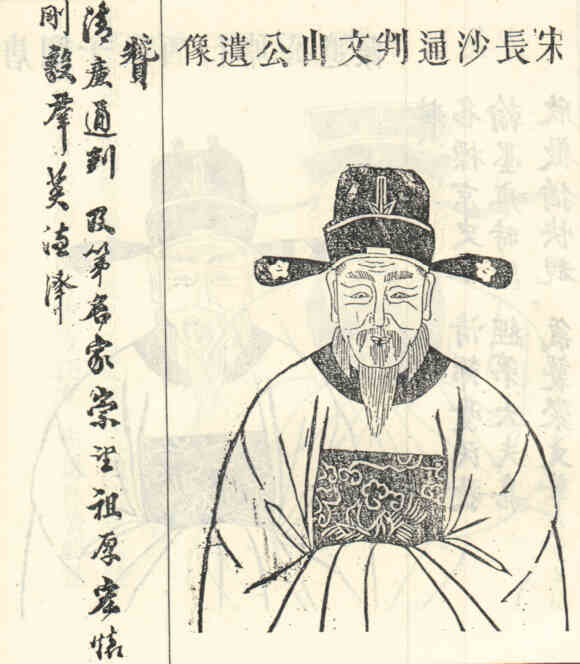 宋長沙通判文山公遺像
贊
清廉通判 及第名家 崇望祖原 懷
剛毅 羣英德澤